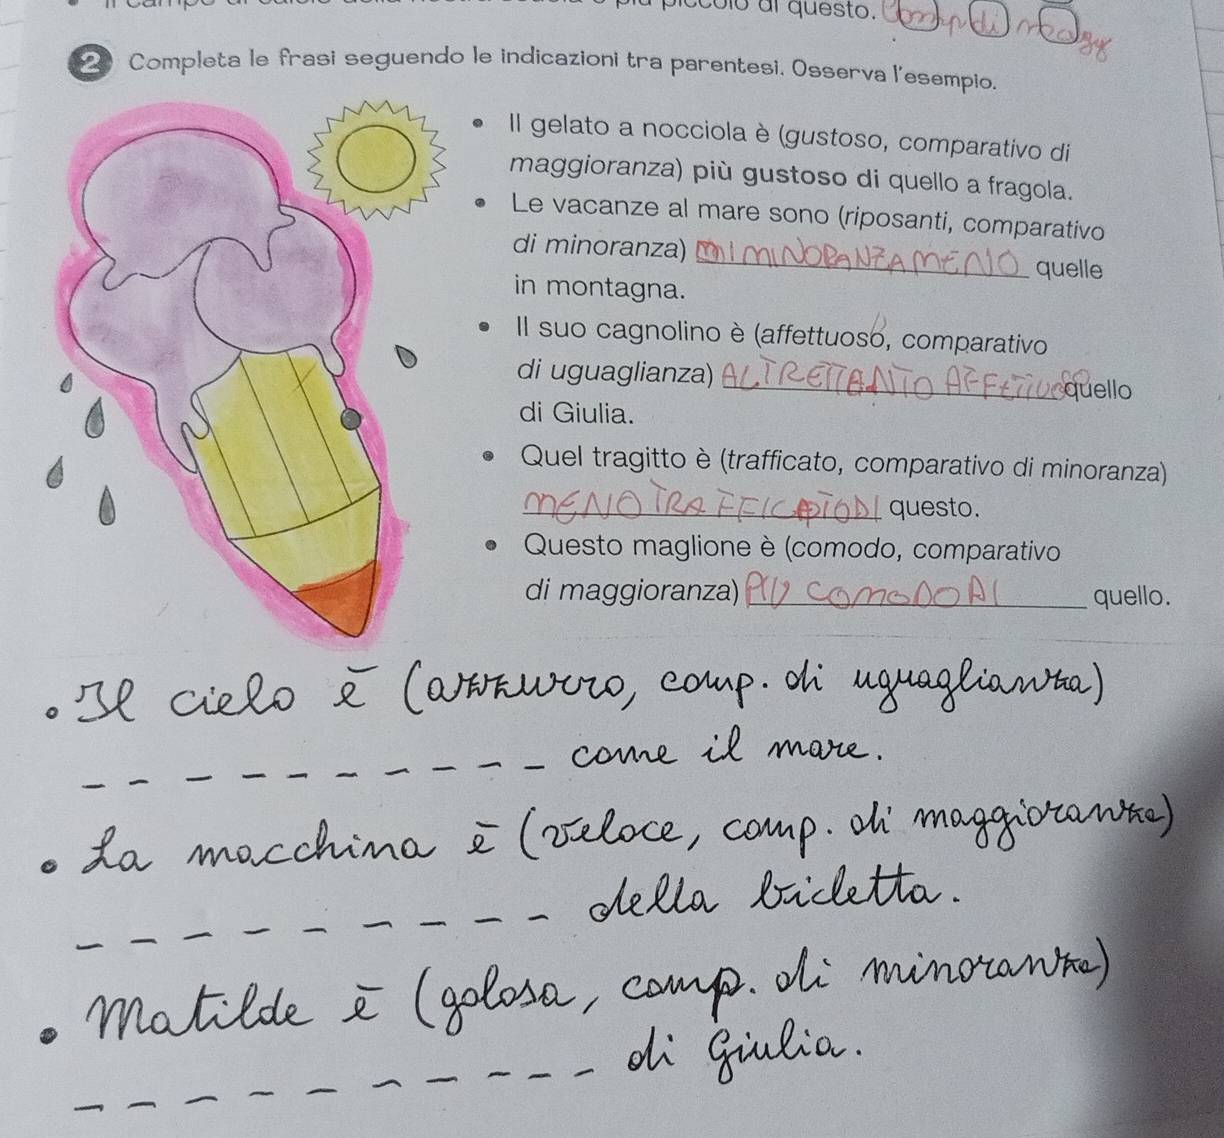 più piccolo di questo. Comp di magg
2 Completa le frasi seguendo le indicazioni tra parentesi. Osserva l'esempio.
• Il gelato a nocciola è (gustoso, comparativo di
maggioranza) più gustoso di quello a fragola.
• Le vacanze al mare sono (riposanti, comparativo
di minoranza) MIMINORANZAMENO quelle
in montagna.
• Il suo cagnolino è (affettuoso, comparativo
di uguaglianza) ALTRETTANTO AFFETTUOSO quello
di Giulia.
• Quel tragitto è (trafficato, comparativo di minoranza)
MENO TRAFFICATO DI questo.
• Questo maglione è (comodo, comparativo
di maggioranza) PIÙ COMODO DI quello.
• Il cielo è (azzurro, comp. di uguaglianza)
come il mare.
• La macchina è (veloce, comp. di maggioranza)
della bicletta.
• Matilde è (golosa, comp. di minoranza)
di Giulia.